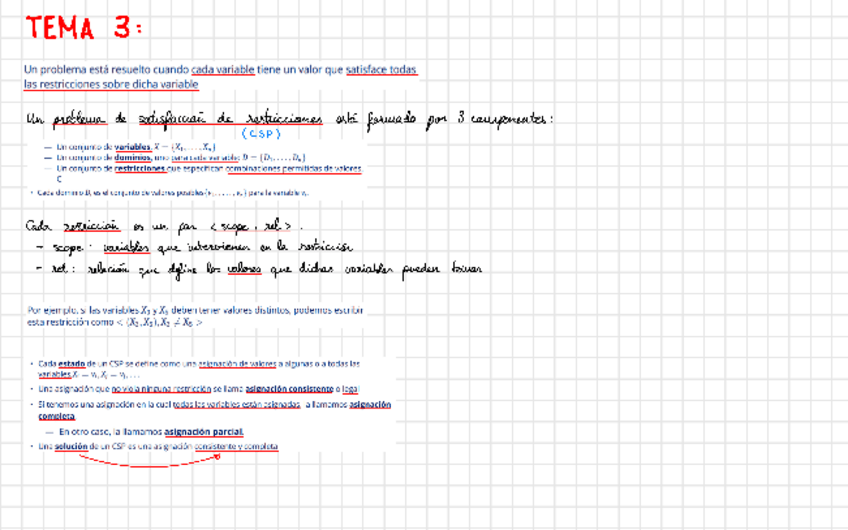 TEMA 3:
Un problema está resuelto cuando cada variable tiene un valor que satisface todas
las restricciones sobre dicha variable
Un problema de satisfacción de restricciones está formado por 3 componentes:
(CSP)
— Un conjunto de variables, X = {X₁, . . . , Xₙ}
— Un conjunto de dominios, uno para cada variable: D = {D₁, . . . , Dₙ}
— Un conjunto de restricciones que especifican combinaciones permitidas de valores,
C
• Cada dominio Dᵢ es el conjunto de valores posibles para la variable
Cada restricción es un par < scope, rel > .
- scope: variables que intervienen en la restricción
- rel: relación que define los valores que dichas variables pueden tomar
Por ejemplo, si las variables y deben tener valores distintos, podemos escribir
esta restricción como
• Cada estado de un CSP se define como una asignación de valores a algunas o a todas las
variables
• Una asignación que no viola ninguna restricción se llama asignación consistente o legal
• Si tenemos una asignación en la cual todas las variables están asignadas, la llamamos asignación
completa
— En otro caso, la llamamos asignación parcial.
• Una solución de un CSP es una asignación consistente y completa